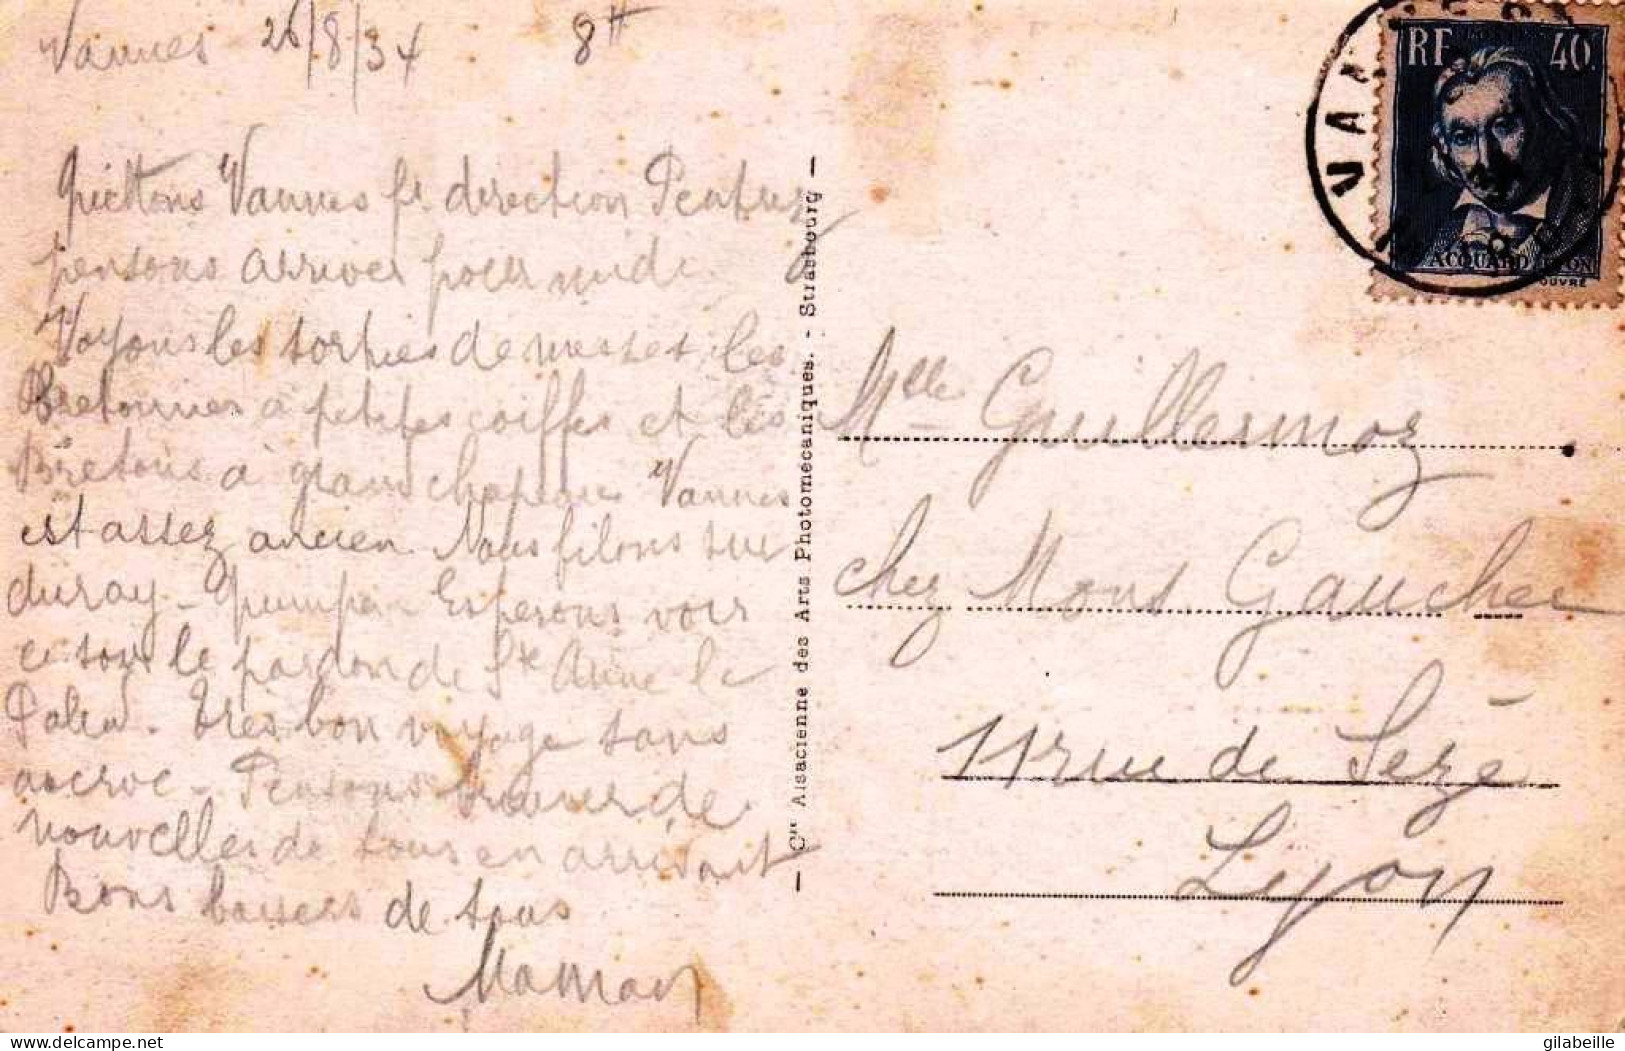 Vannes 26/8/34 8H
Quittons Vannes pr direction Pentrez
pensons arriver pour midi.
Voyons les sorties de messes, les
Bretonnes à petites coiffes et les
Bretons à grand chapeau Vannes
est assez ancien. Nous filons sur
Auray - Quimper Espérons voir
ce soir le pardon de Ste Anne la
Palud. Très bon voyage sans
accroc - Pensons trouver de
nouvelles de tous en arrivant
Bons baisers de tous
Maman
Cie Alsacienne des Arts Photomécaniques. - Strasbourg
VANNES
RF 40
JACQUARD LYON
OUVRÉ
Mlle Guillermoz
chez Mons Gaucher
11 rue de Sèze
Lyon
delcampe.net
gilabeille